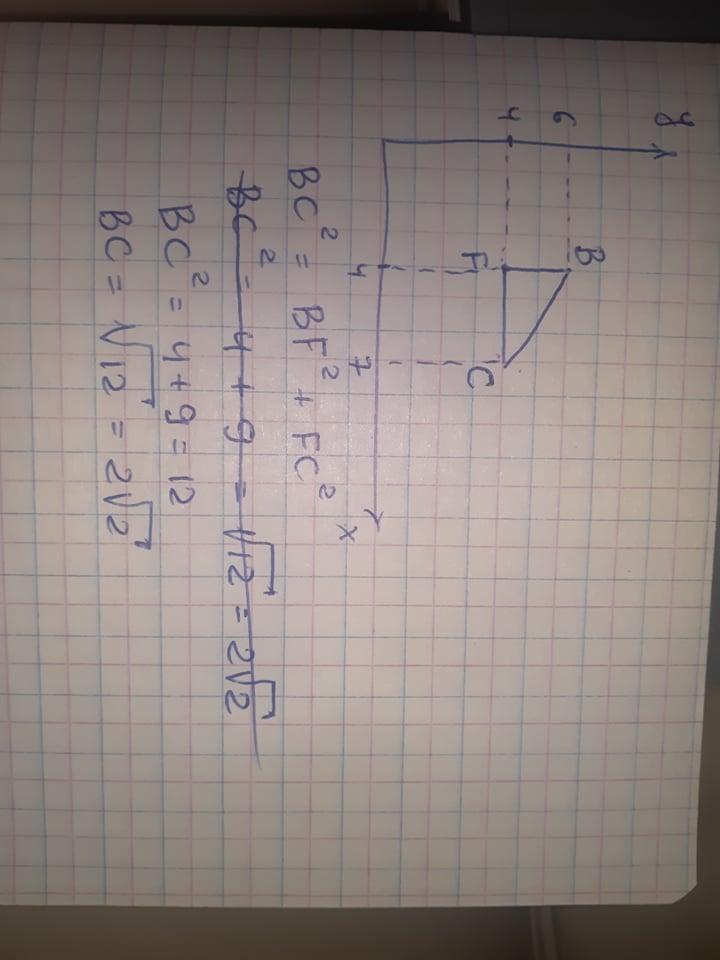 y
6
B
4
F
C
4
7
x
BC² = BF² + FC²
BC² = 4 + 9 = √12 = 2√2
BC² = 4 + 9 = 12
BC = √12 = 2√2